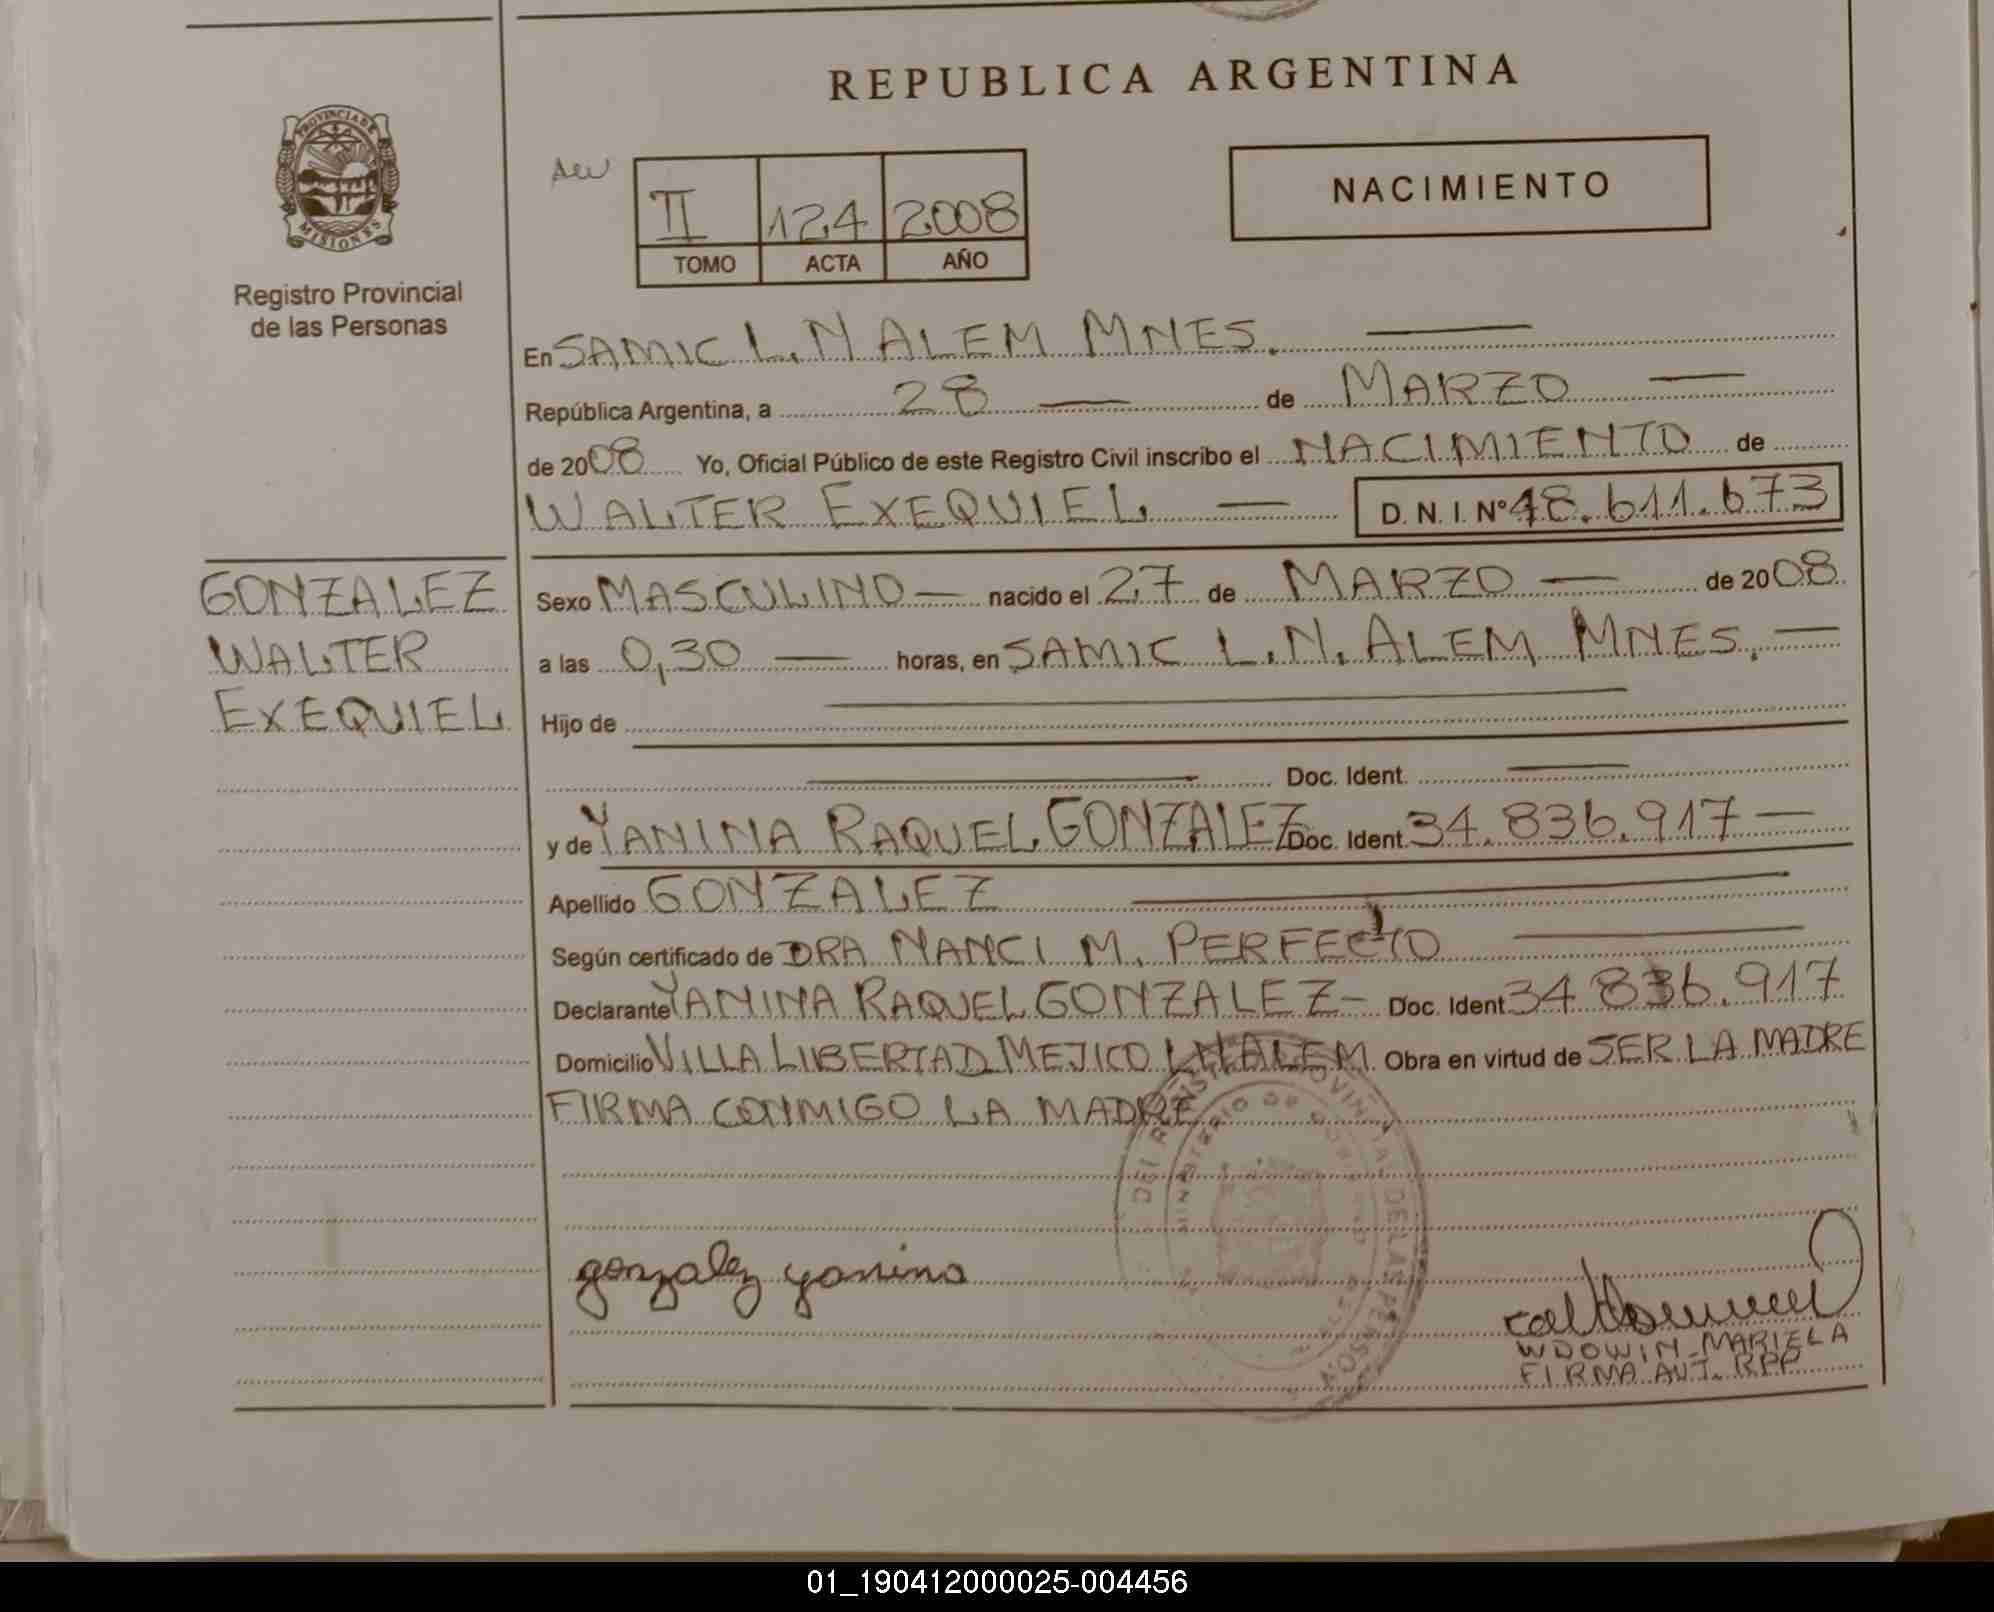 REPUBLICA ARGENTINA
PROVINCIA DE
MISIONES
Registro Provincial
de las Personas
II 124 2008
TOMO ACTA AÑO
NACIMIENTO
En SAMIC L.N ALEM MNES.
República Argentina, a 28 de MARZO
de 2008 Yo, Oficial Público de este Registro Civil inscribo el NACIMIENTO de
WALTER EXEQUIEL D.N.I. Nº 48.611.673
GONZALEZ
WALTER
EXEQUIEL
Sexo MASCULINO nacido el 27 de MARZO de 2008
a las 0,30 horas, en SAMIC L.N. ALEM MNES.
Hijo de
Doc. Ident.
y de YANINA RAQUEL GONZALEZ Doc. Ident. 34.836.917
Apellido GONZALEZ
Según certificado de DRA NANCI M. PERFECTO
Declarante YANINA RAQUEL GONZALEZ Doc. Ident 34.836.917
Domicilio VILLA LIBERTAD MEJICO LNALEM. Obra en virtud de SER LA MADRE
FIRMA CONMIGO LA MADRE
gonzalez yanina
WDOWIN MARIELA
FIRMA AUT. RPP
01_190412000025-004456